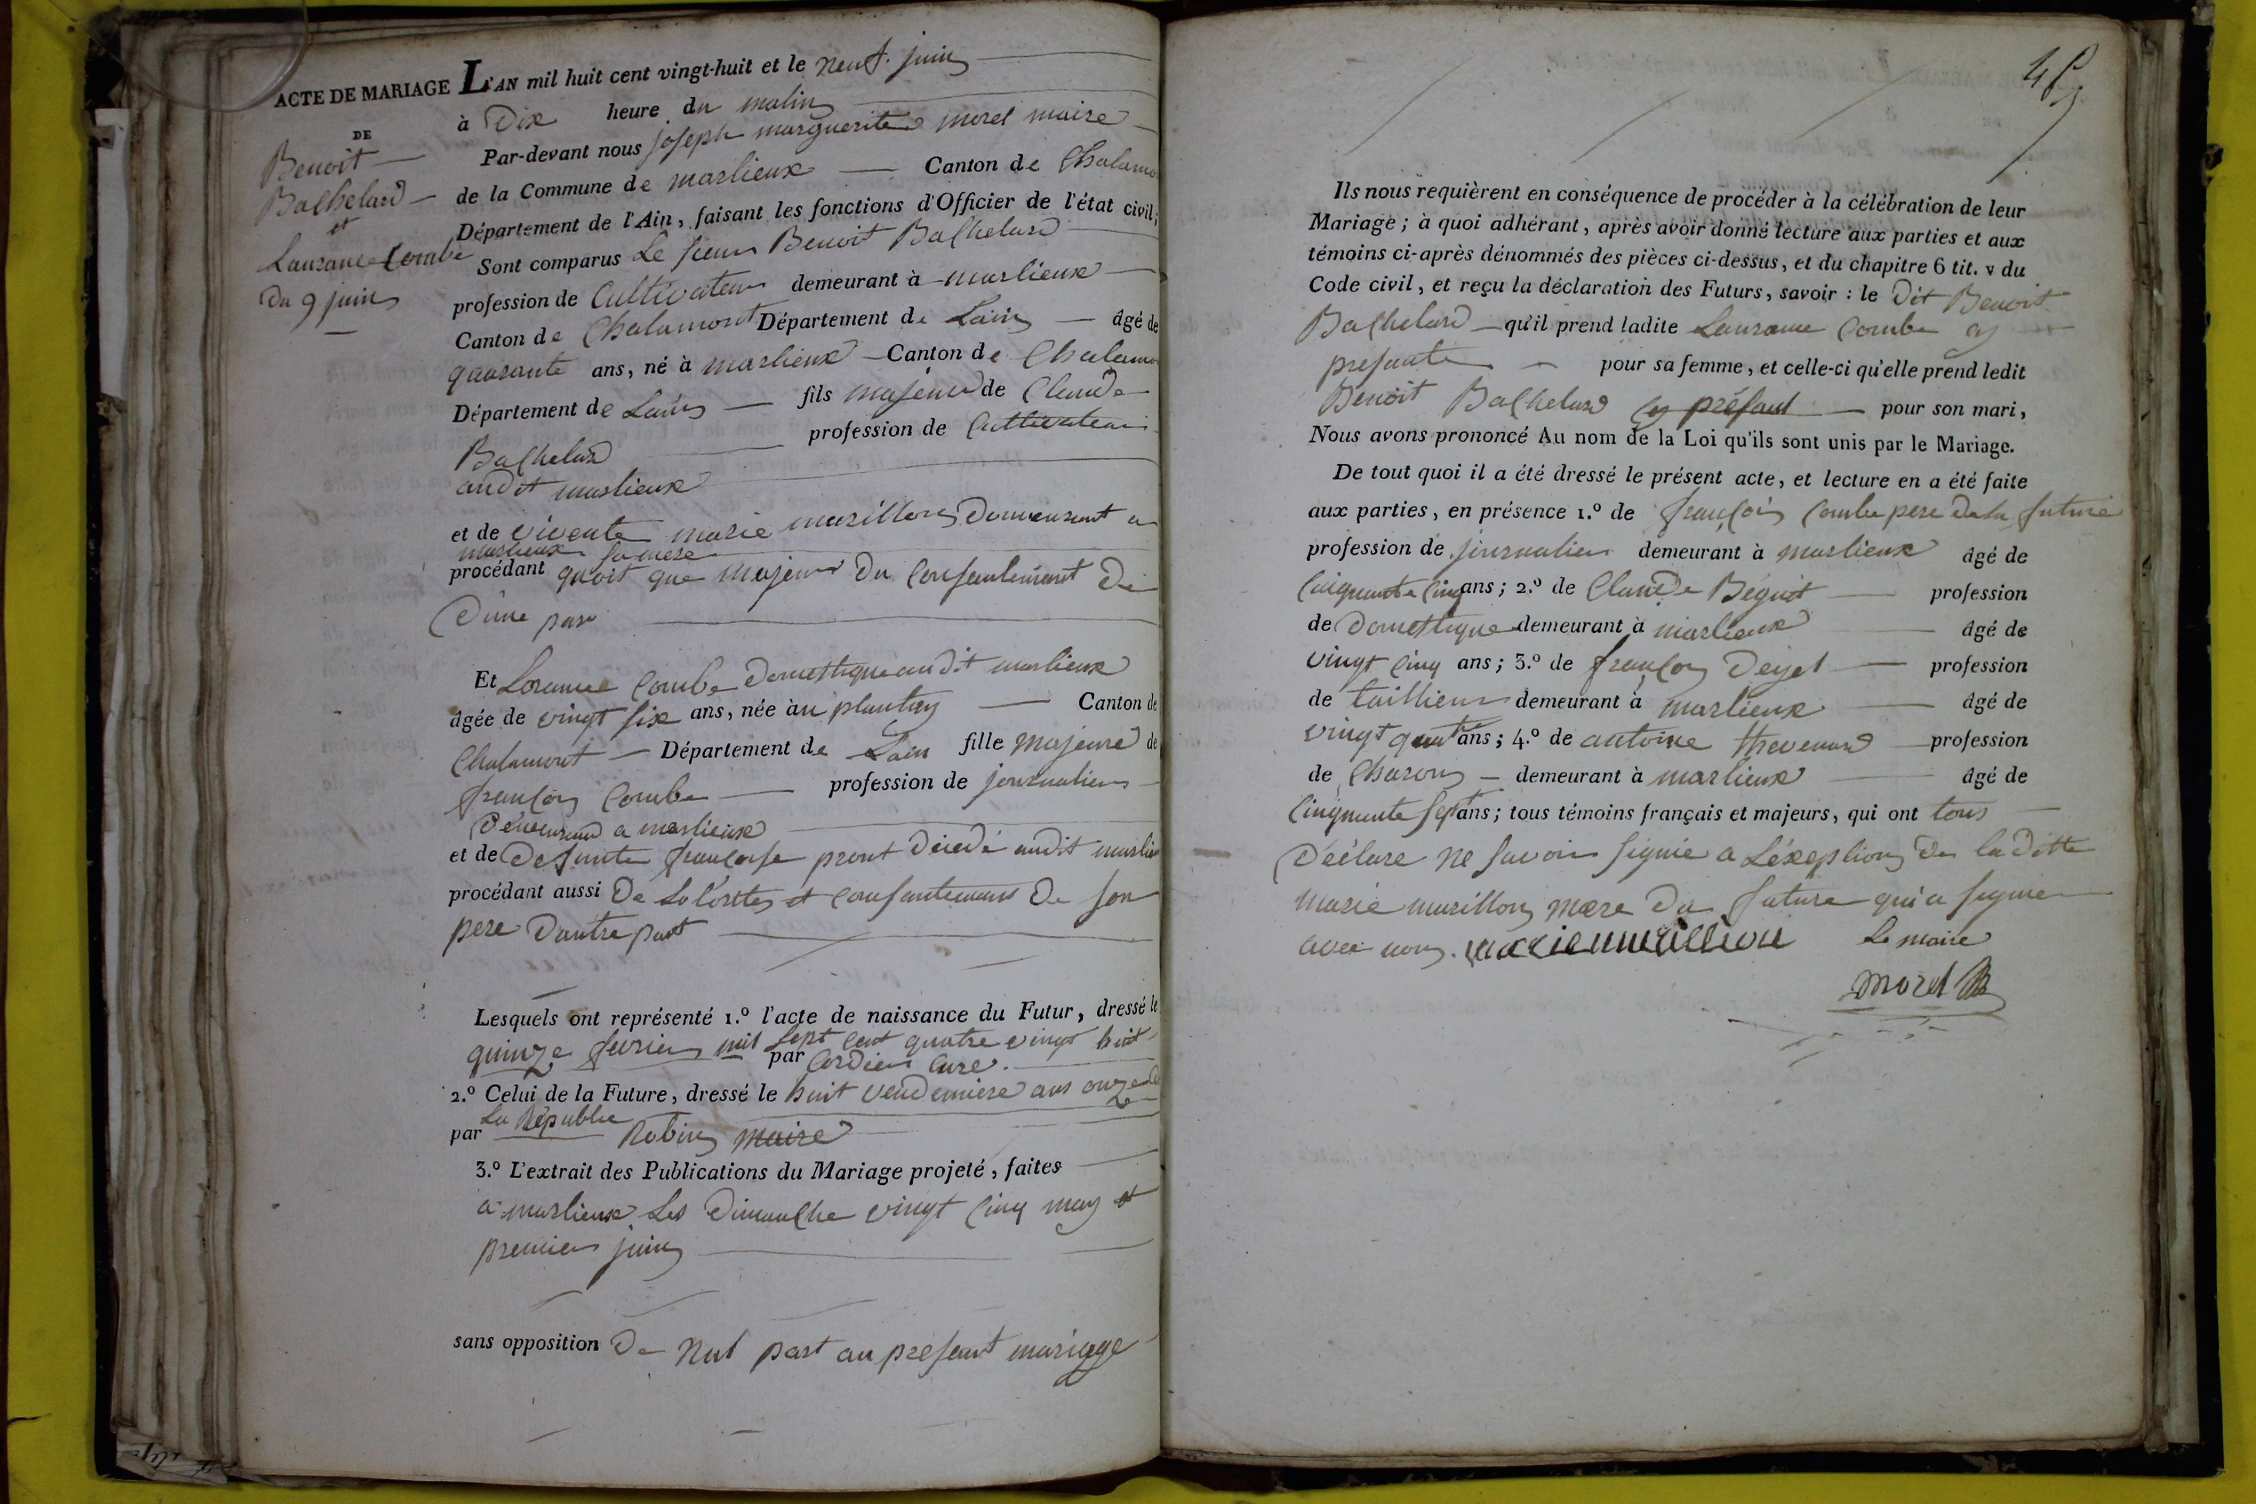 ACTE DE MARIAGE
DE
Benoit
Bachelard
et
Lauranse Combe
Du 9 juin
L'AN mil huit cent vingt-huit et le neuf juin
à Dix heure du matin
Par-devant nous joseph marguerite morel maire
de la Commune de marlieux Canton de Chalamo
Département de l'Ain, faisant les fonctions d'Officier de l'état civil;
Sont comparus Le sieur Benoit Bachelard
profession de Cultivateur demeurant à marlieux
Canton de Chalamont Département de Lain âgé de
quarante ans, né à marlieux Canton de Chalamo
Département de Lain fils majeur de Claude
Bachelard profession de Cultivateur
audit marlieux
et de vivente marie murillon Demeurant a
marlieux sa mere
procédant quoit que majeur Du Consentement De
D'une part
Et Loranse Combe Domestique audit marlieux
âgée de vingt six ans, née au plantay Canton de
Chalamont Département de Lain fille majeure de
françois Combe profession de journalier
Demeurand a marlieux
et de Defunte françoise pront Décedé audit marlie
procédant aussi De Lotorittes et Consantement De son
pere D'autre part
Lesquels ont représenté 1.º l'acte de naissance du Futur, dressé le
quinze fevrier mil sept cent quatre vingt huit
par Cordier Curé.
2.º Celui de la Future, dressé le huit vendemiere ans onze de
La Républie
par Robin maire
3.º L'extrait des Publications du Mariage projeté, faites
a marlieux Les Dimanche vingt cinq may et
premier juin
sans opposition De Nul part au présant mariage
Ils nous requièrent en conséquence de procéder à la célébration de leur
Mariage; à quoi adhérant, après avoir donné lecture aux parties et aux
témoins ci-après dénommés des pièces ci-dessus, et du chapitre 6 tit. v du
Code civil, et reçu la déclaration des Futurs, savoir : le Dit Benoit
Bachelard qu'il prend ladite Lauranse Combe cy
presante pour sa femme, et celle-ci qu'elle prend ledit
Benoit Bachelard cy présant pour son mari,
Nous avons prononcé Au nom de la Loi qu'ils sont unis par le Mariage.
De tout quoi il a été dressé le présent acte, et lecture en a été faite
aux parties, en présence 1.º de françois Combe pere De la future
profession de journalier demeurant à marlieux âgé de
Cinquante Cinq ans; 2.º de Claude Béguet profession
de Domestique demeurant à marlieux âgé de
vingt cinq ans; 3.º de françois Dejet profession
de taillieur demeurant à marlieux âgé de
vingt quat ans; 4.º de antoine thevenard profession
de Charon demeurant à marlieux âgé de
Cinquante sept ans; tous témoins français et majeurs, qui ont tous
Déclare ne savoir signie a L'exeption De la ditte
marie murillon mere Du future qui a signie
avec nous. marie murillion Le maire
Morel